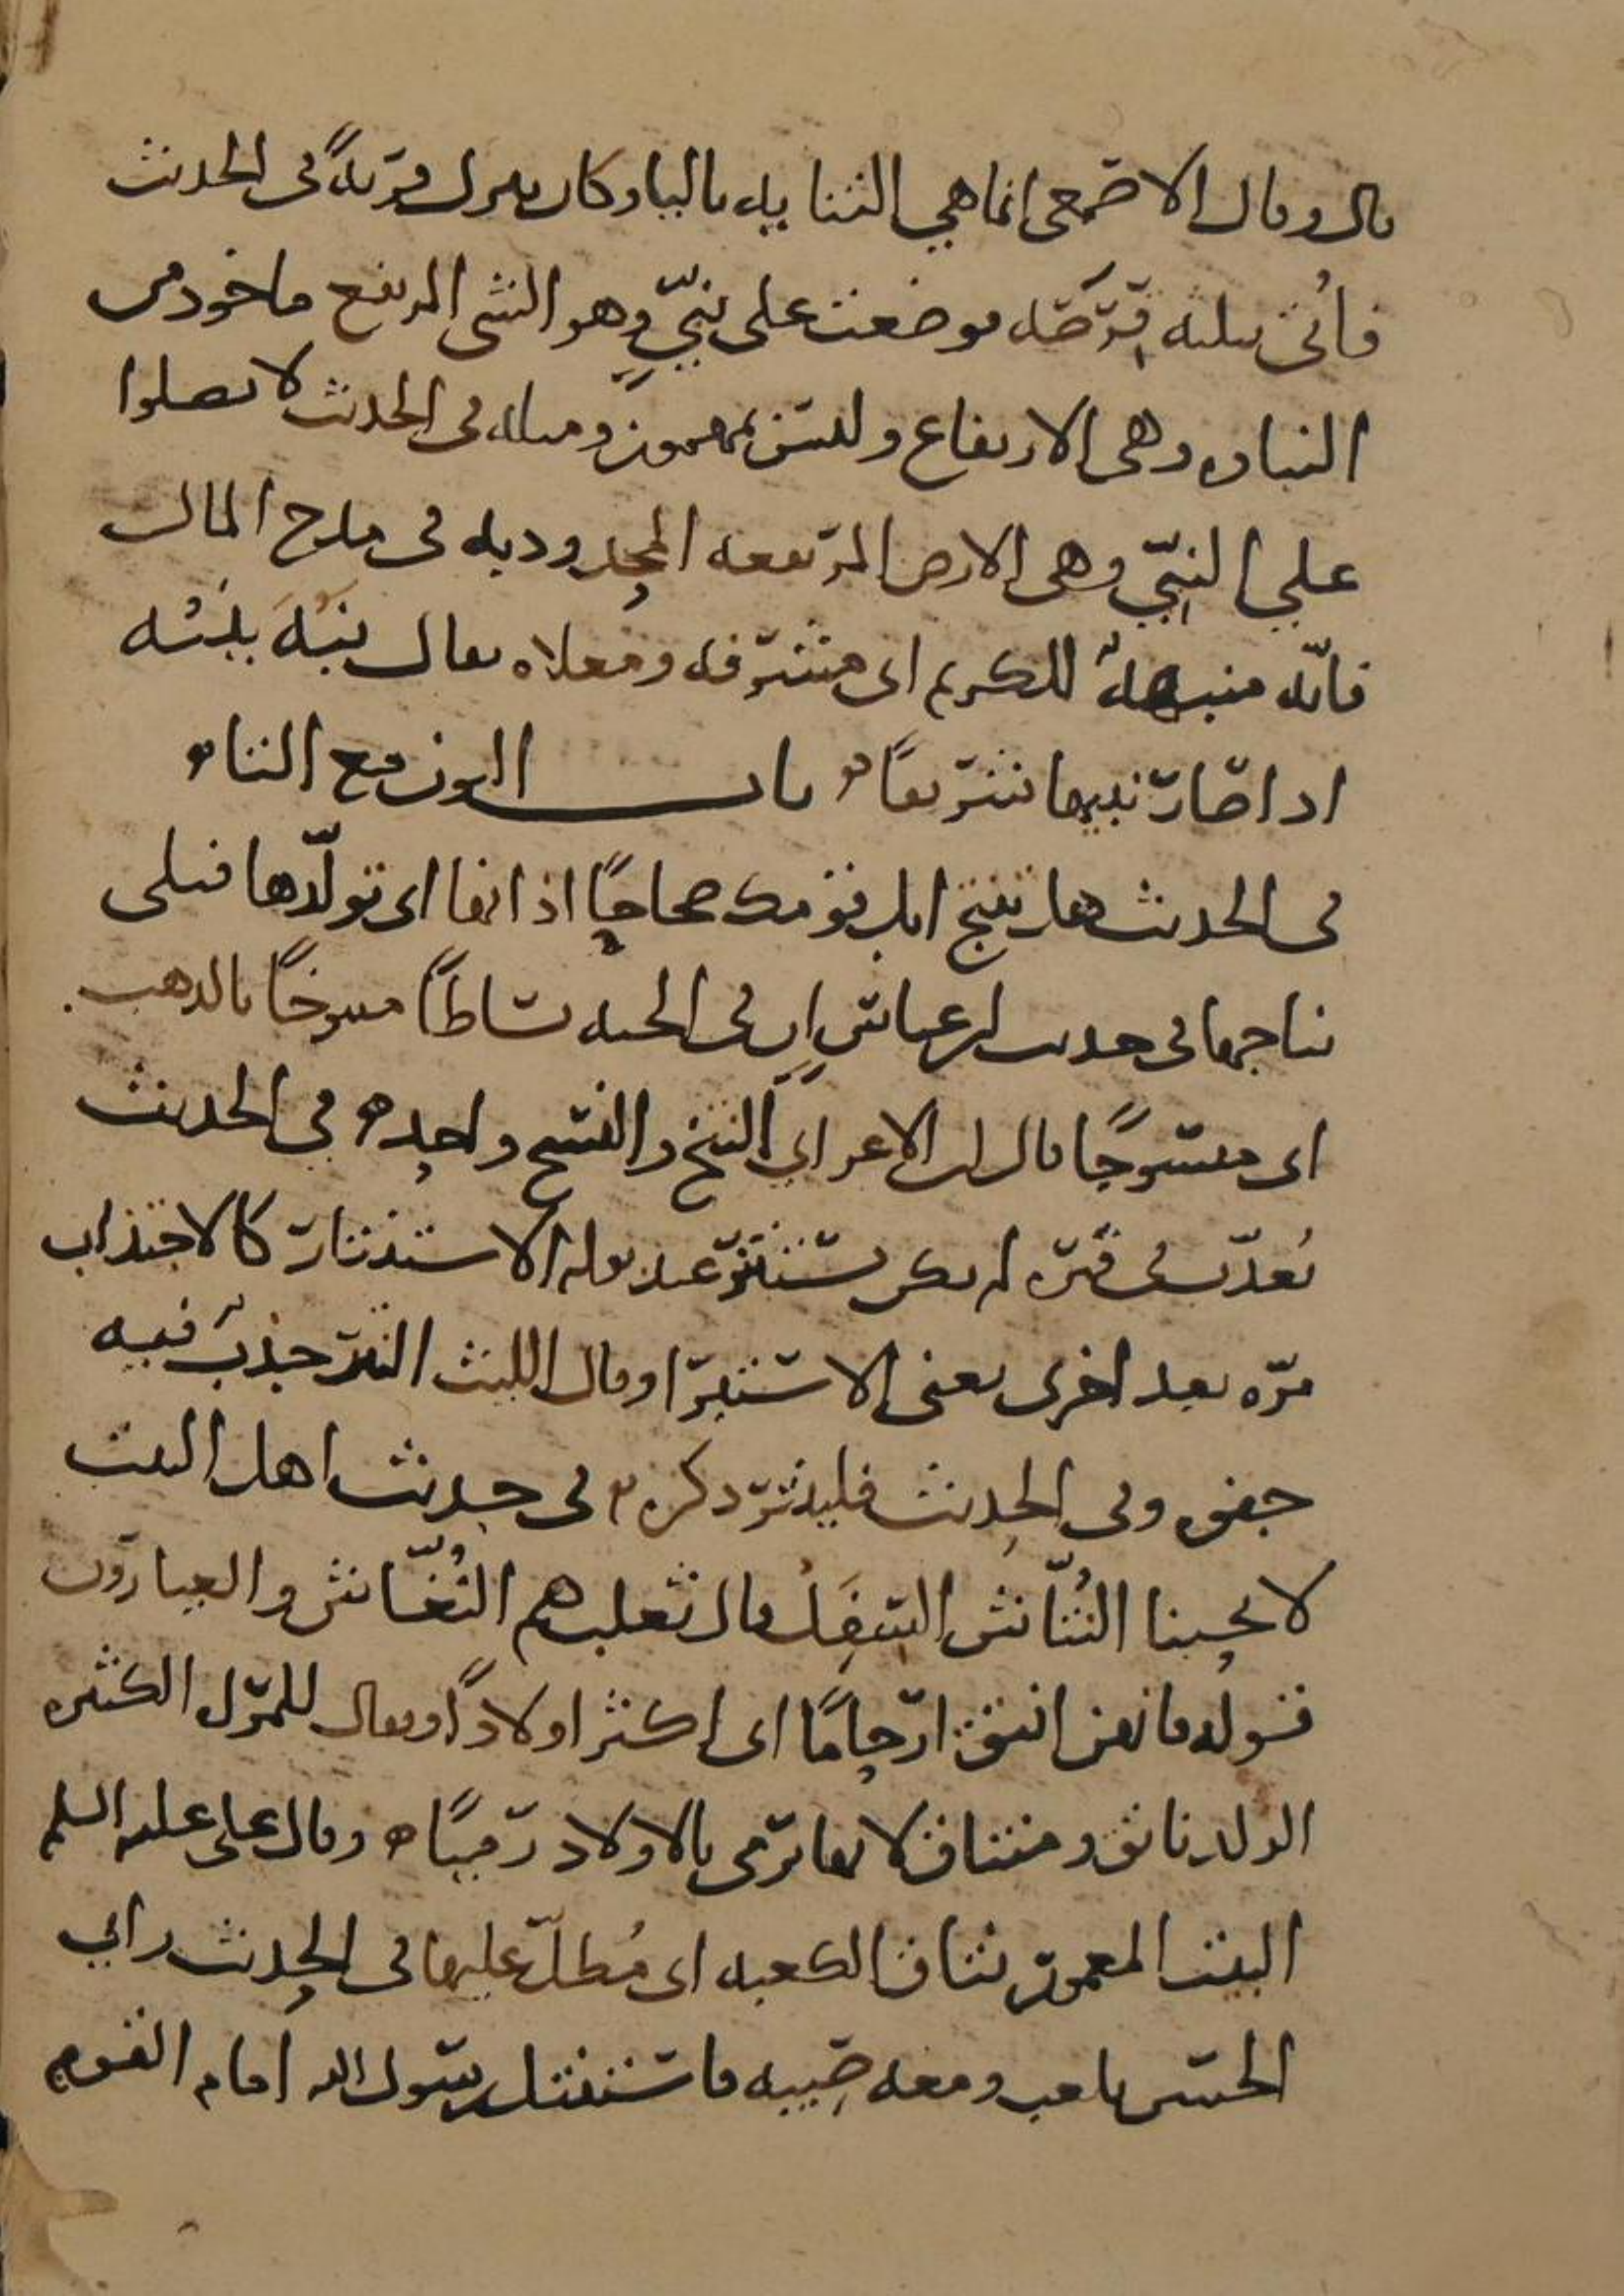 قال وقال الاصمعي انما هي الثنايه بالبا وكان ينزل قريةً في الحديث
فأتي بثلثه قرصه فوضعت على نبيّ وهو الشي المرتفع ماخوذ من
النباوه وهي الارتفاع وليس بمهموز ومثله في الحديث لا تصلوا
علي النبيّ وهي الارض المرتفعه المحدودبه في مدح المال
فانّه منبهةٌ للكريم اى مشرفه ومعلاه يقال نبُهَ ينبُه
اذا صار نبيها شريفًا ه باب النون مع التاء ه
في الحديث هل تنتج ابل قومك صحاحًا اذانها اى تولّدها فتلى
نتاجها في حديث ابن عباس ان في الجنه بساطًا منتوخًا بالذهب
اى منسوجًا قال ابن الاعرابي النتخ والنسج واحد ه في الحديث
يُعذّب في قبره لم يكن يستنتر عند بوله الاستنتار كالاجتذاب
مرّه بعد اخرى يعني الاستبرا وقال الليث النتر جذبٌ فيه
جفوه وفي الحديث فلينتر ذكره ه في حديث اهل البيت
لا يحبنا النُتّاش السَفِل قال ثعلب هم النُغّاش والعيارون
قوله فانهن انتق ارحامًا اى اكثر اولادًا ويقال للمره الكثيره
الولد ناتق ومنتاق لانها ترمى بالاولاد رميًا ه وقال على عليه السلم
البيت المعمور نتاق الكعبه اى مُطلّ عليها في الحديث راي
الحسن يلعب ومعه صبيه فاستنتل رسول الله امام القوم